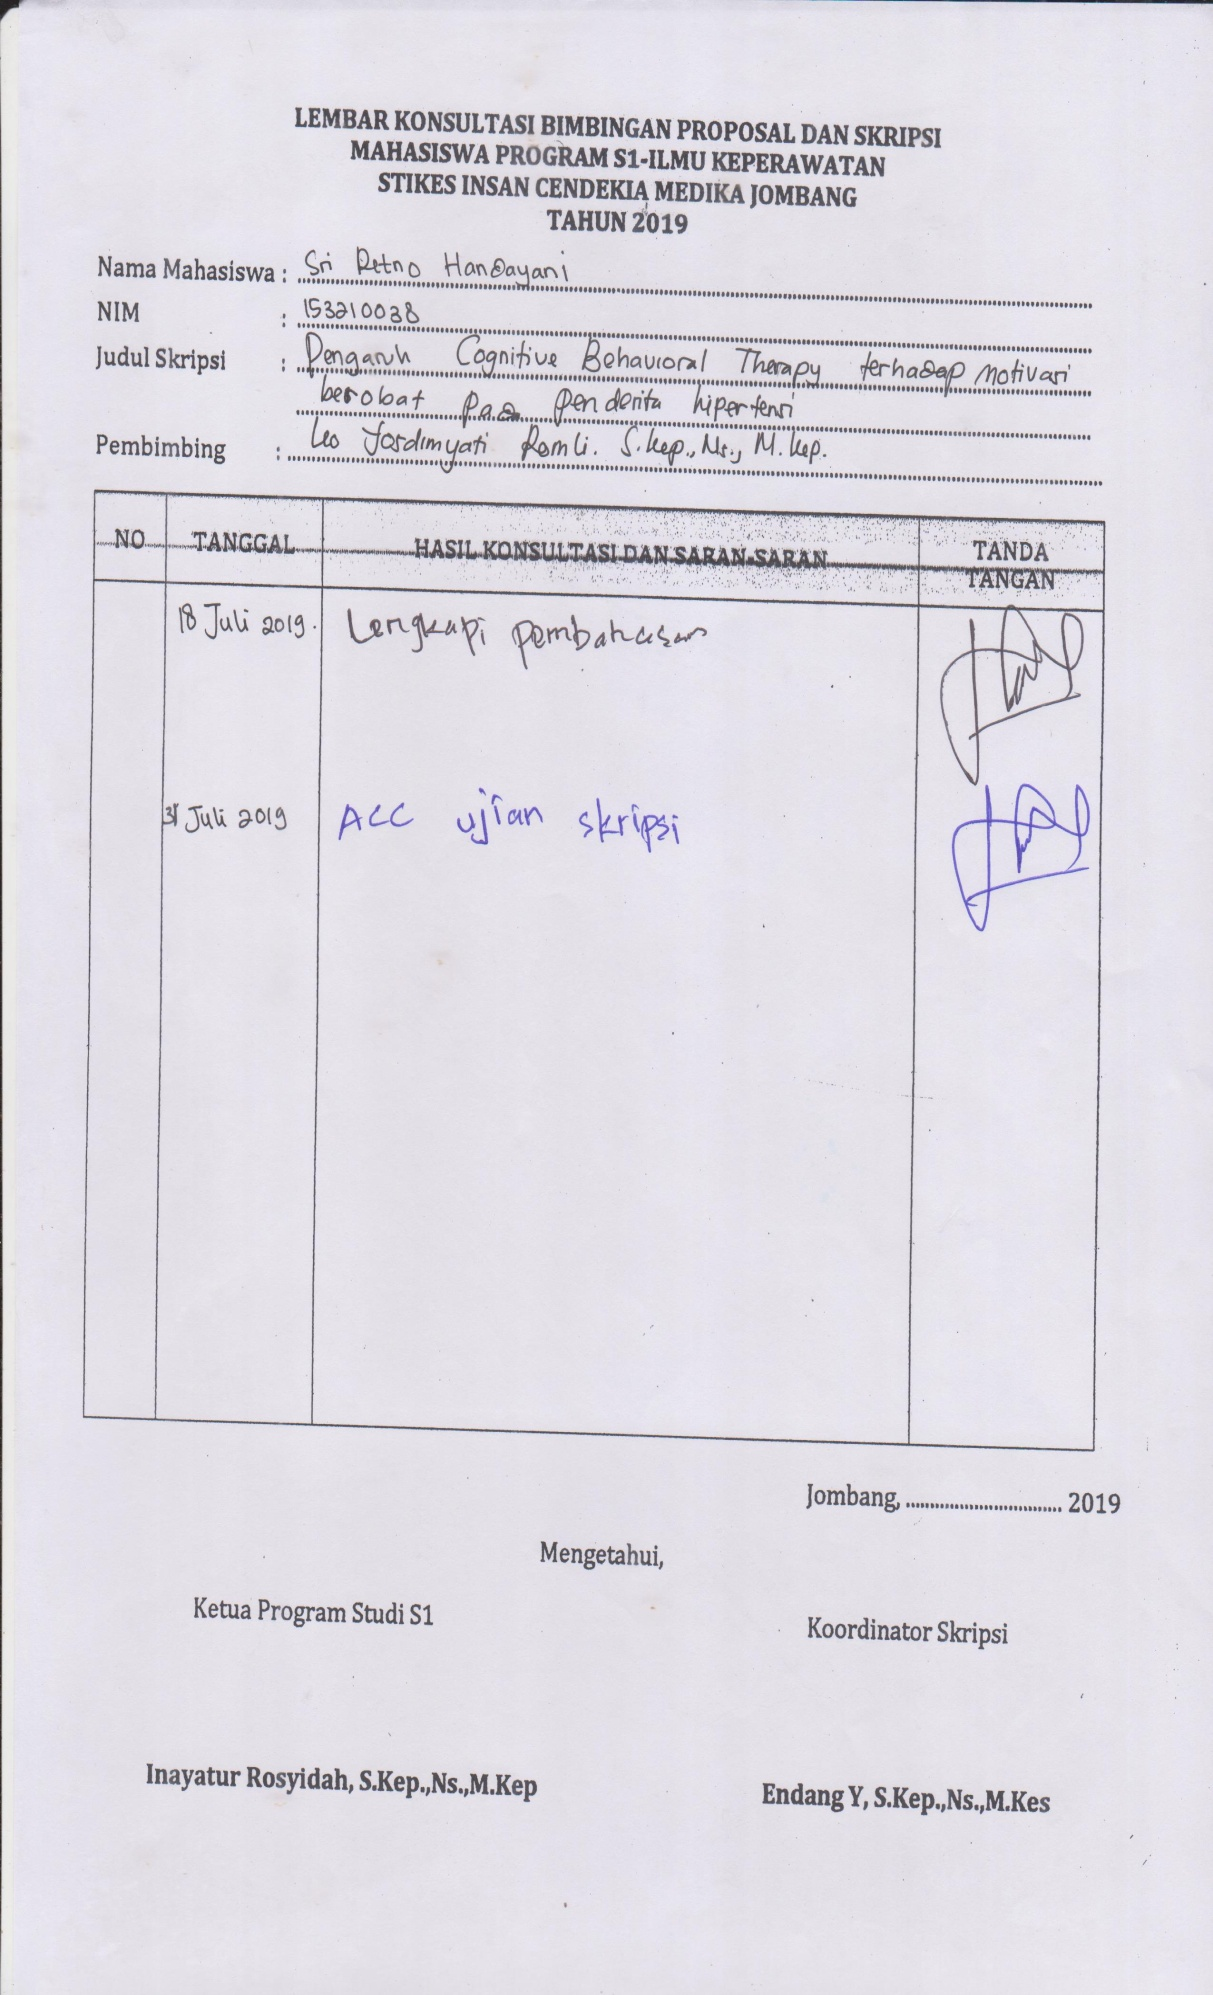 LEMBAR KONSULTASI BIMBINGAN PROPOSAL DAN SKRIPSI
MAHASISWA PROGRAM S1-ILMU KEPERAWATAN
STIKES INSAN CENDEKIA MEDIKA JOMBANG
TAHUN 2019
Nama Mahasiswa : Sri Retno Handayani
NIM : 153210038
Judul Skripsi : Pengaruh Cognitive Behavioral Therapy terhadap motivasi
berobat pada penderita hipertensi
Pembimbing : Leo Yosdimyati Romli. S.Kep., Ns., M.Kep.
NO TANGGAL HASIL KONSULTASI DAN SARAN-SARAN TANDA TANGAN
18 Juli 2019. Lengkapi pembahasan
31 Juli 2019 ACC ujian skripsi
Jombang, ................................ 2019
Mengetahui,
Ketua Program Studi S1
Koordinator Skripsi
Inayatur Rosyidah, S.Kep.,Ns.,M.Kep
Endang Y, S.Kep.,Ns.,M.Kes